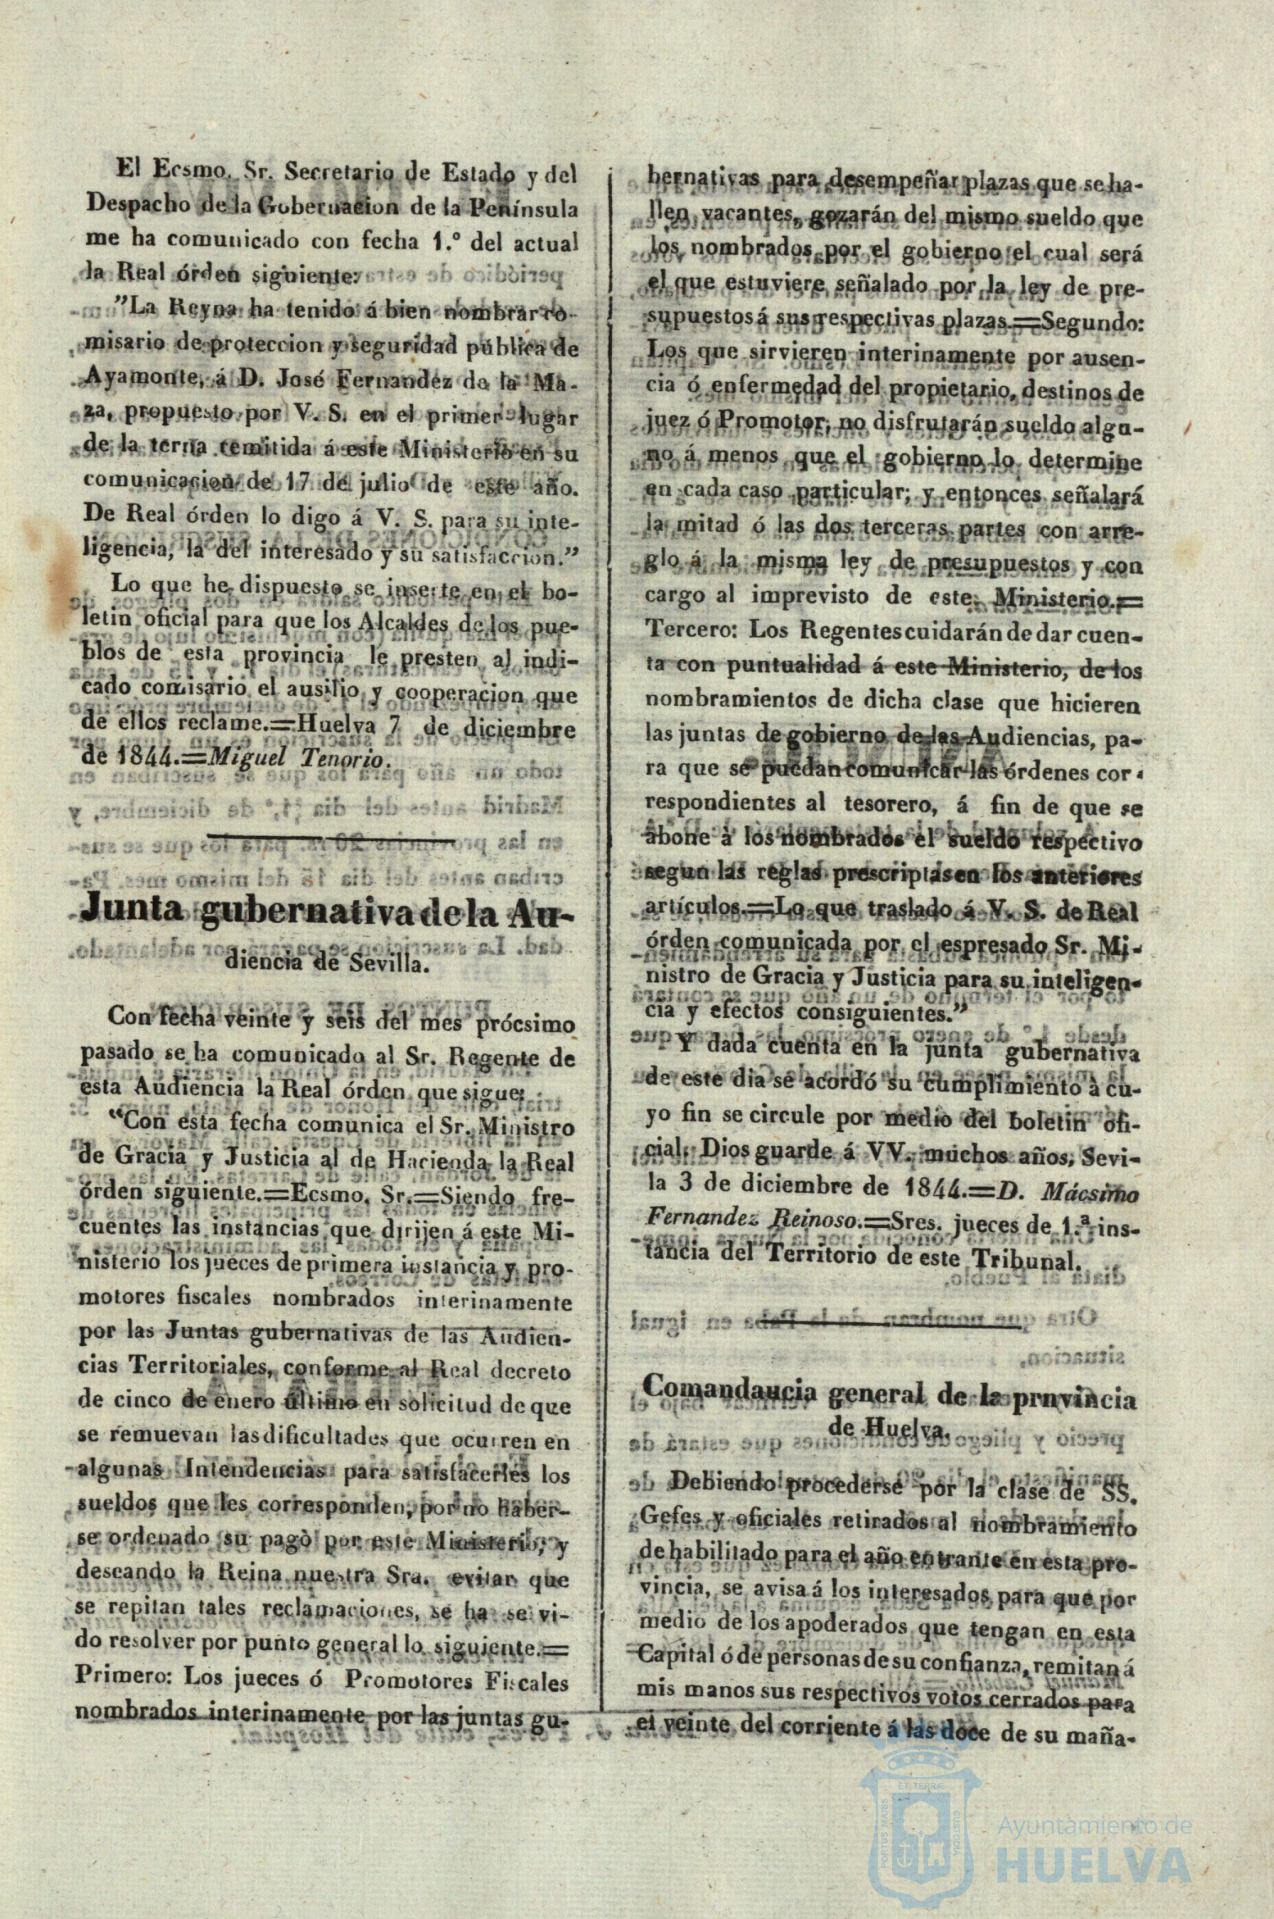 El Ecsmo. Sr. Secretario de Estado y del
Despacho de la Gobernacion de la Península
me ha comunicado con fecha 1.º del actual
la Real órden siguiente:
"La Reyna ha tenido á bien nombrar co-
misario de proteccion y seguridad pública de
Ayamonte, á D. José Fernandez de la Ma-
za, propuesto por V. S. en el primer lugar
de la terna remitida á este Ministerio en su
comunicacion de 17 de julio de este año.
De Real órden lo digo á V. S. para su inte-
ligencia, la del interesado y su satisfaccion."
Lo que he dispuesto se inserte en el bo-
letin oficial para que los Alcaldes de los pue-
blos de esta provincia le presten al indi-
cado comisario el ausilio y cooperacion que
de ellos reclame.=Huelva 7 de diciembre
de 1844.=Miguel Tenorio.
Junta gubernativa de la Au-
diencia de Sevilla.
Con fecha veinte y seis del mes prócsimo
pasado se ha comunicado al Sr. Regente de
esta Audiencia la Real órden que sigue:
"Con esta fecha comunica el Sr. Ministro
de Gracia y Justicia al de Hacienda la Real
órden siguiente.=Ecsmo. Sr.=Siendo fre-
cuentes las instancias que dirijen á este Mi-
nisterio los jueces de primera instancia y pro-
motores fiscales nombrados interinamente
por las Juntas gubernativas de las Audien-
cias Territoriales, conforme al Real decreto
de cinco de enero último en solicitud de que
se remuevan las dificultades que ocurren en
algunas Intendencias para satisfacerles los
sueldos que les corresponden, por no haber-
se ordenado su pago por este Ministerio, y
deseando la Reina nuestra Sra. evitar que
se repitan tales reclamaciones, se ha servi-
do resolver por punto general lo siguiente.=
Primero: Los jueces ó Promotores Fiscales
nombrados interinamente por las juntas gu-
bernativas para desempeñar plazas que se ha-
llen vacantes, gozarán del mismo sueldo que
los nombrados por el gobierno el cual será
el que estuviere señalado por la ley de pre-
supuestos á sus respectivas plazas.=Segundo:
Los que sirvieren interinamente por ausen-
cia ó enfermedad del propietario, destinos de
juez ó Promotor, no disfrutarán sueldo algu-
no á menos que el gobierno lo determine
en cada caso particular; y entonces señalará
la mitad ó las dos terceras partes con arre-
glo á la misma ley de presupuestos y con
cargo al imprevisto de este Ministerio.=
Tercero: Los Regentes cuidarán de dar cuen-
ta con puntualidad á este Ministerio, de los
nombramientos de dicha clase que hicieren
las juntas de gobierno de las Audiencias, pa-
ra que se puedan comunicar las órdenes cor-
respondientes al tesorero, á fin de que se
abone á los nombrados el sueldo respectivo
segun las reglas prescriptas en los anteriores
artículos.=Lo que traslado á V. S. de Real
órden comunicada por el espresado Sr. Mi-
nistro de Gracia y Justicia para su inteligen-
cia y efectos consiguientes."
Y dada cuenta en la junta gubernativa
de este dia se acordó su cumplimiento á cu-
yo fin se circule por medio del boletin ofi-
cial. Dios guarde á VV. muchos años. Sevi-
lla 3 de diciembre de 1844.=D. Mácsimo
Fernandez Reinoso.=Sres. jueces de 1.ª ins-
tancia del Territorio de este Tribunal.
Comandaucia general de la prnvincia
de Huelva.
Debiendo procederse por la clase de SS.
Gefes y oficiales retirados al nombramiento
de habilitado para el año entrante en esta pro-
vincia, se avisa á los interesados para que por
medio de los apoderados que tengan en esta
Capital ó de personas de su confianza, remitan á
mis manos sus respectivos votos cerrados para
el veinte del corriente á las doce de su maña-
ET TERRÆ
PORTUS MARIS
CUSTODIA
Ayuntamiento de
HUELVA